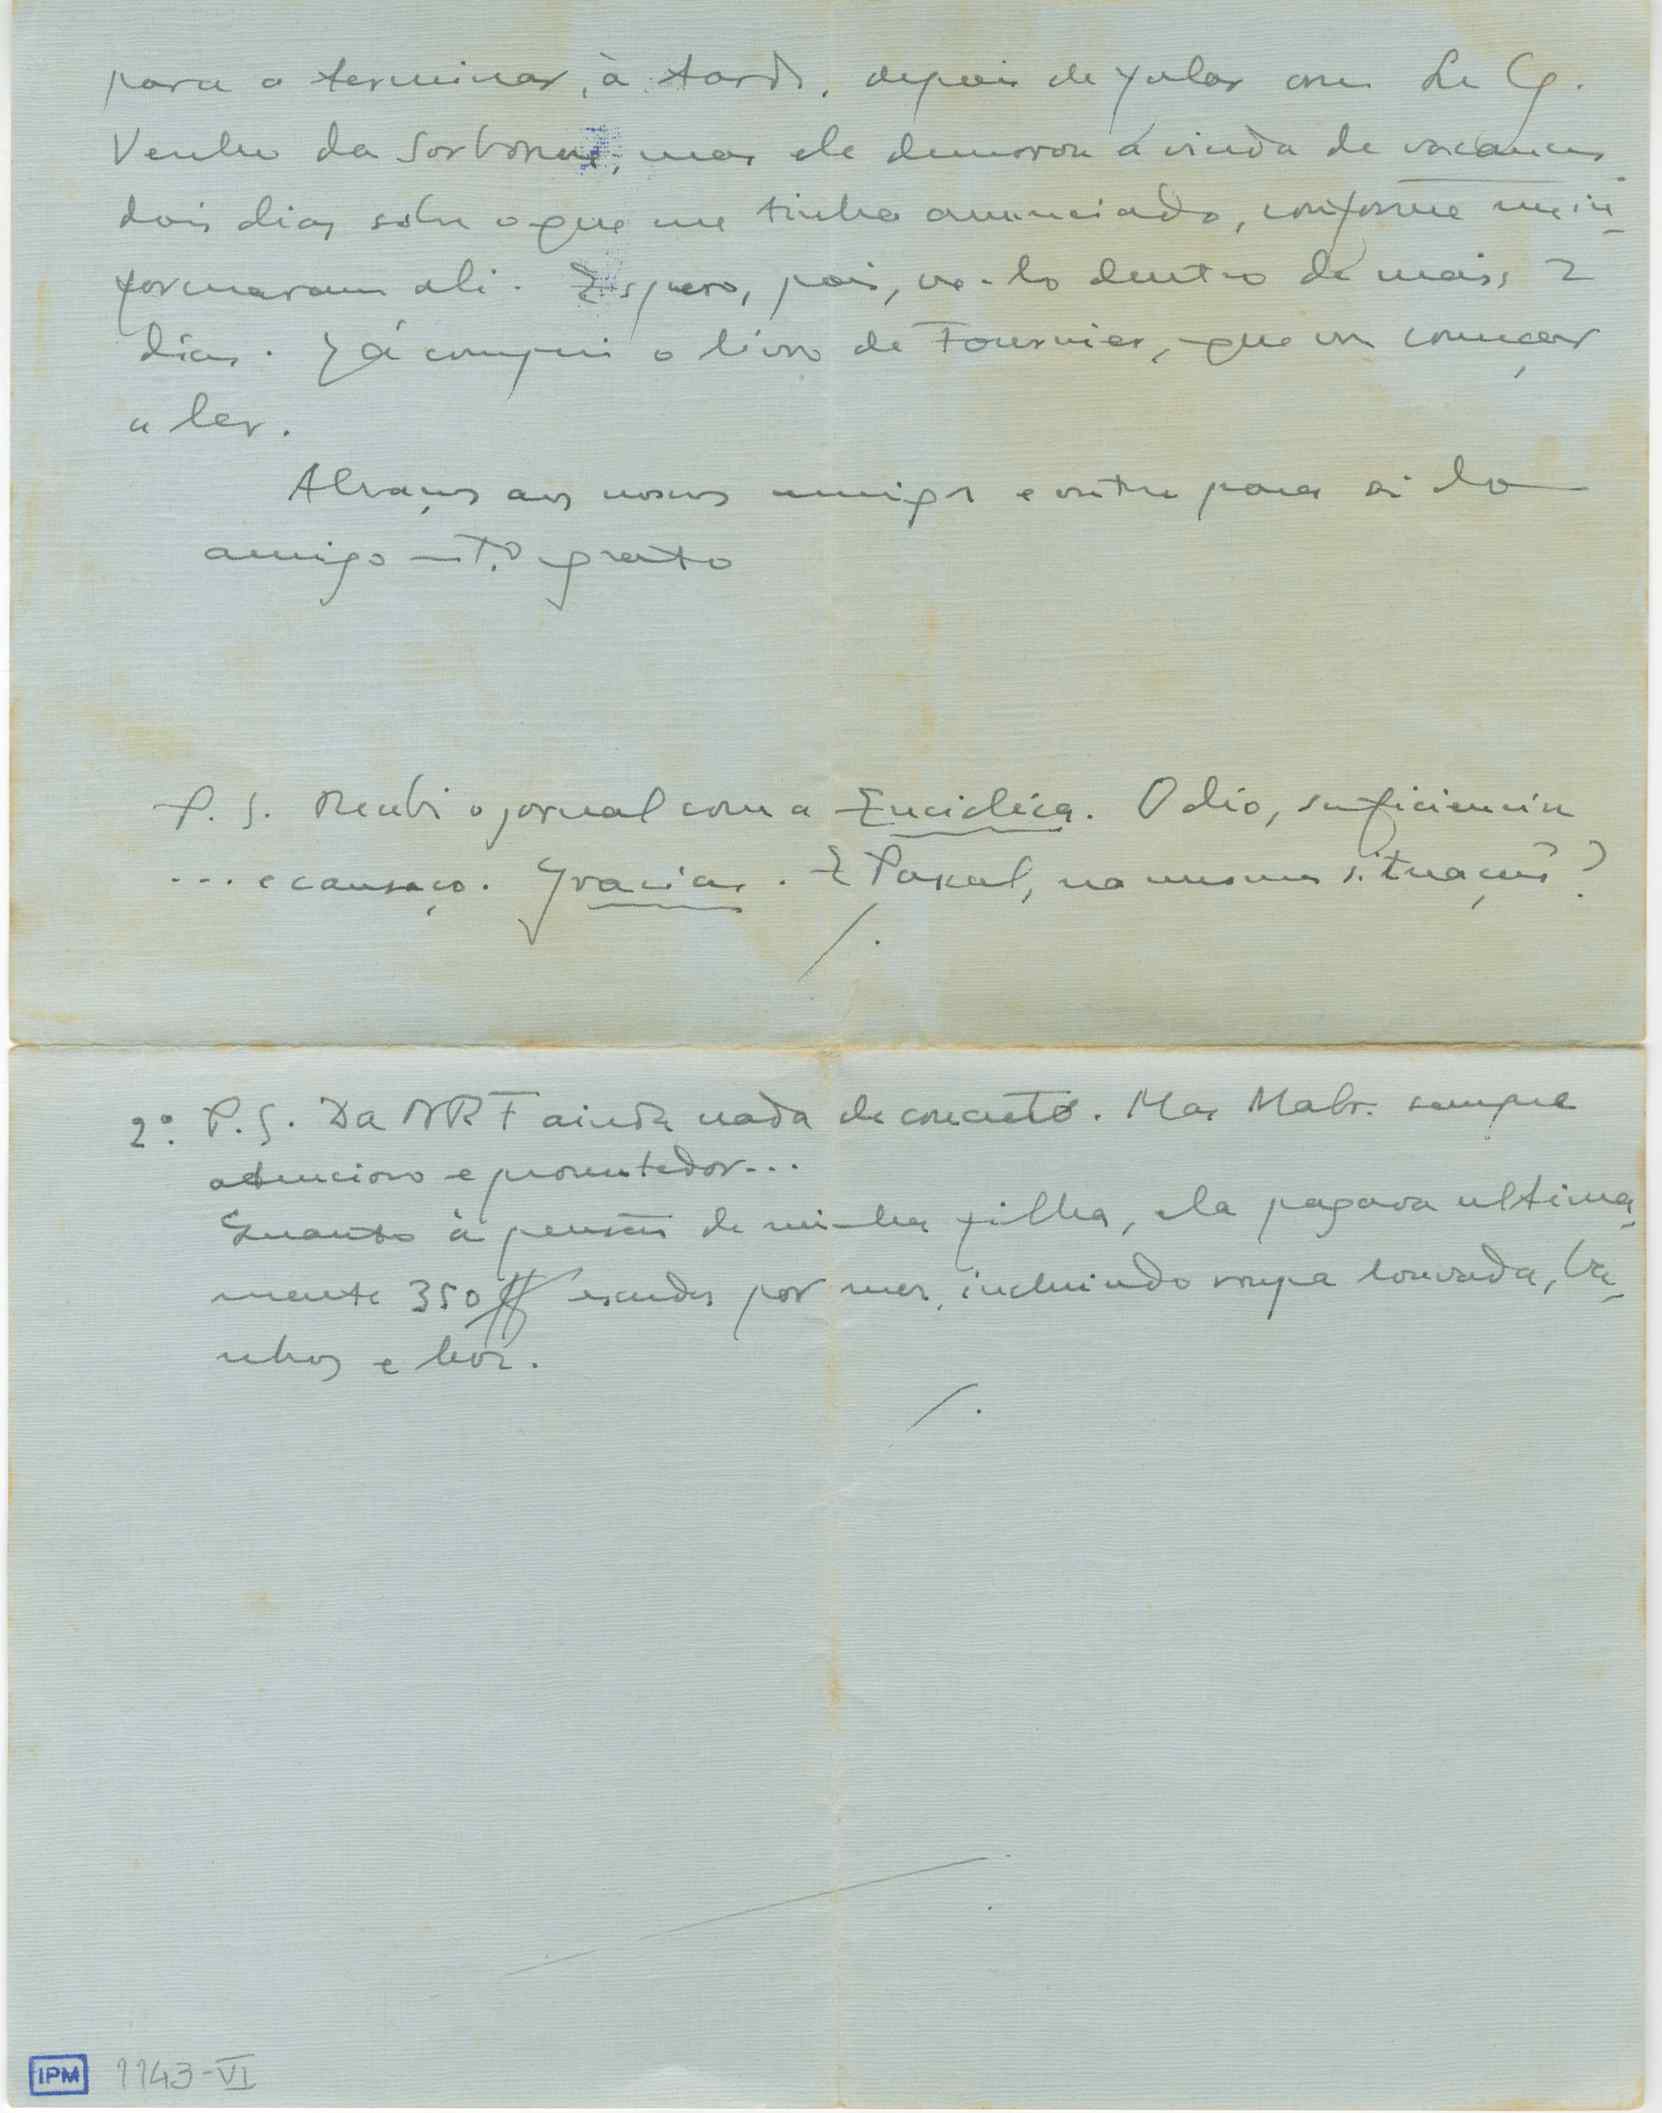 para o terminar, à tarde, depois de falar com Le G.
Venho da Sorbonne, mas ele demorou a vinda de vacances
dois dias sobre o que me tinha anunciado, conforme me in-
formaram ali. Espero, pois, ve-lo dentro de mais 2
dias. Já comprei o livro de Fournier, que vou começar
a ler.
Abraços aos nossos amigos e outro para si do
amigo mto grato
P.S. Recebi o jornal com a Enciclica. Odio, suficiencia
... e cansaço. Gracias. E Pascal, na mesma situação?
/.
2º. P.S. Da NRF ainda nada de concreto. Mas Malr. sempre
atencioso e prometedor...
Quanto à pensão de minha filha, ela pagava ultima-
mente 350 escudos por mez, incluindo roupa lavada, ba-
nhos e luz.
/.
IPM 1143-VI